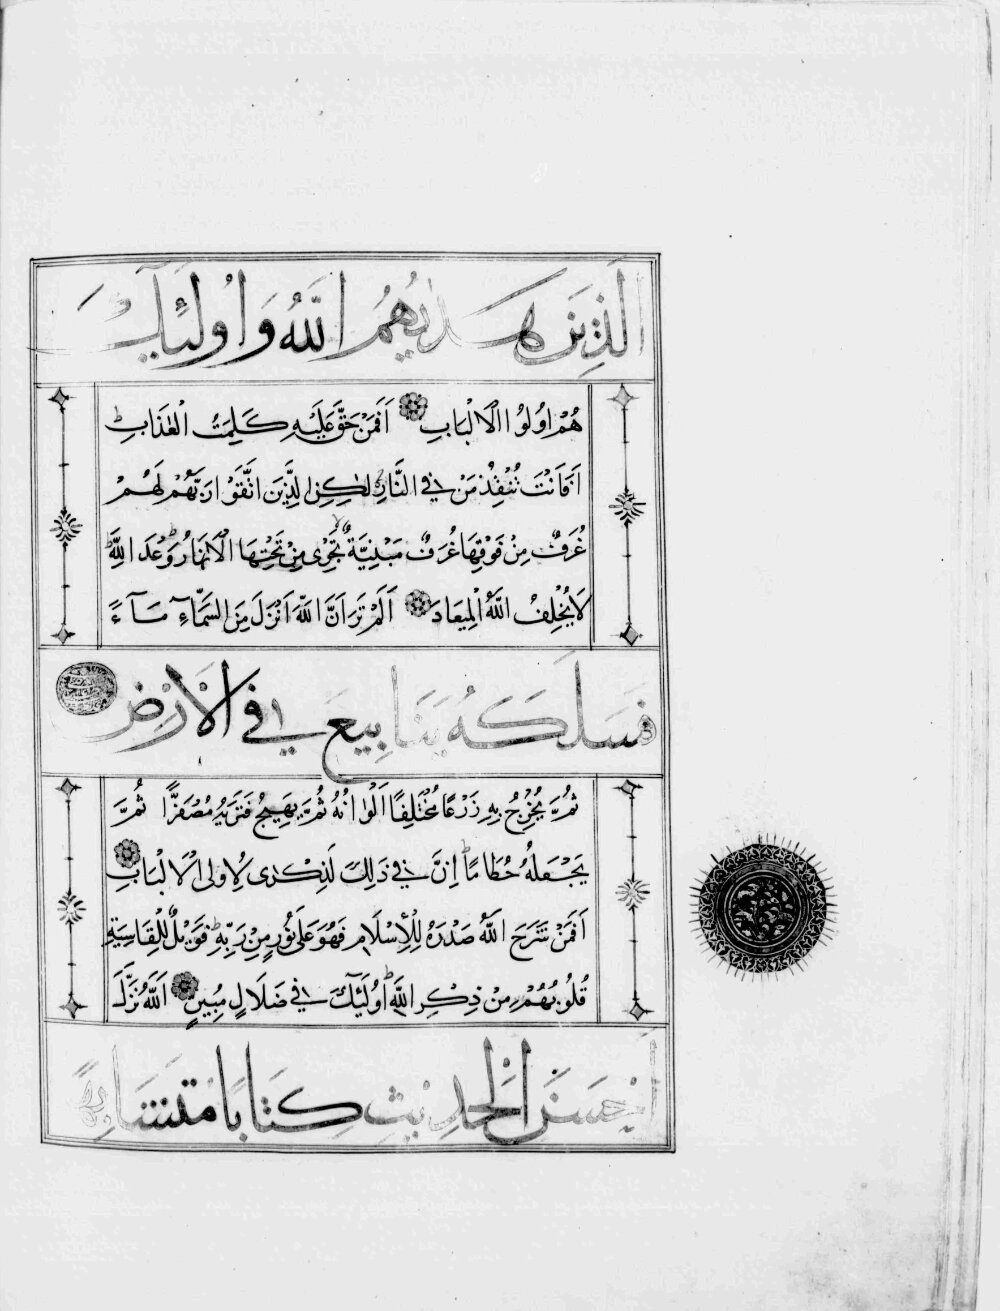 الَّذِينَ هَدٰيهُمُ اللّٰهُ وَاُولٰئِكَ
هُمْ اُولُوا الْاَلْبَابِ اَفَمَنْ حَقَّ عَلَيْهِ كَلِمَتُ الْعَذَابِ ط
اَفَاَنْتَ تُنْقِذُ مَنْ فِي النَّارِ لٰكِنِ الَّذِينَ اتَّقَوْا رَبَّهُمْ لَهُمْ
غُرَفٌ مِنْ فَوْقِهَا غُرَفٌ مَبْنِيَّةٌ تَجْرِى مِنْ تَحْتِهَا الْاَنْهَارُ ط وَعْدَ اللّٰهِ ط
لَا يُخْلِفُ اللّٰهُ الْمِيعَادَ اَلَمْ تَرَ اَنَّ اللّٰهَ اَنْزَلَ مِنَ السَّمَآءِ مَآءً
فَسَلَكَهُ يَنَابِيعَ فِي الْاَرْضِ
ثُمَّ يُخْرِجُ بِهِ زَرْعًا مُخْتَلِفًا اَلْوَانُهُ ثُمَّ يَهِيجُ فَتَرٰيهُ مُصْفَرًّا ثُمَّ
يَجْعَلُهُ حُطَامًا ط اِنَّ فِي ذٰلِكَ لَذِكْرٰى لِاُولِى الْاَلْبَابِ
اَفَمَنْ شَرَحَ اللّٰهُ صَدْرَهُ لِلْاِسْلَامِ فَهُوَ عَلٰى نُورٍ مِنْ رَبِّهِ ط فَوَيْلٌ لِلْقَاسِيَةِ
قُلُوبُهُمْ مِنْ ذِكْرِ اللّٰهِ ط اُولٰئِكَ فِي ضَلَالٍ مُبِينٍ اَللّٰهُ نَزَّلَ
اَحْسَنَ الْحَدِيثِ كِتَابًا مُتَشَابِهًا